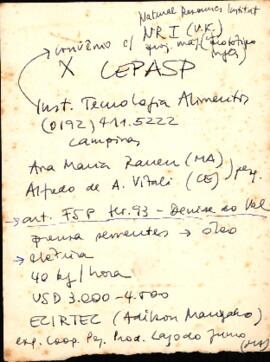 Natural Resources Institut
NRI (U.K.)
convênio c/
X CEPASP
Inst. Tecnologia Alimentos
(0192) 411.5222
Campinas
Ana Maria Rauen (MA)
Alfredo de A. Vitali (CE) peq.
art. FSP 93 - Denise do Val
prensa sementes → óleo
elétrica
40 kg/hora
USD 3.000-4.500
ECIRTEC (Adilson Manzano)
exp. Coop. Peq. Prod. Lago do Junco
(MA)